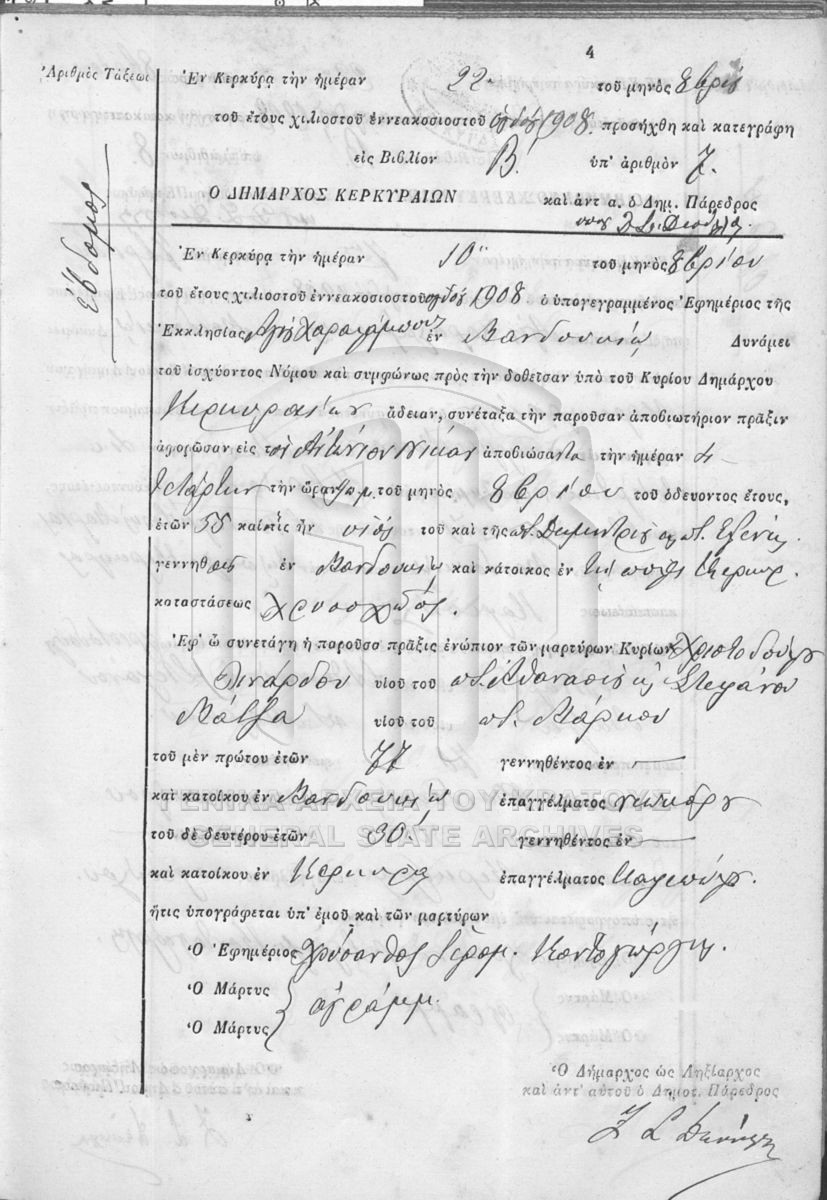 4
Ἀριθμὸς Τάξεως
Ἐν Κερκύρᾳ τὴν ἡμέραν 22. τοῦ μηνὸς 8βρίου
τοῦ ἔτους χιλιοστοῦ ἐννεακοσιοστοῦ ὀγδόου 1908. προσήχθη καὶ κατεγράφη
εἰς Βιβλίον Β. ὑπ' ἀριθμὸν 7.
Ο ΔΗΜΑΡΧΟΣ ΚΕΡΚΥΡΑΙΩΝ καὶ ἀντ α. ὁ Δημ. Πάρεδρος
Ἕβδομος
Ἐν Κερκύρᾳ τὴν ἡμέραν 10 τοῦ μηνὸς 8βρίου
τοῦ ἔτους χιλιοστοῦ ἐννεακοσιοστοῦ ὀγδόου 1908 ὁ ὑπογεγραμμένος Ἐφημέριος τῆς
Ἐκκλησίας Ἁγίου Χαραλάμπους ἐν Δυνάμει
τοῦ ἰσχύοντος Νόμου καὶ συμφώνως πρὸς τὴν δοθεῖσαν ὑπὸ τοῦ Κυρίου Δημάρχου
Κερκυραίων ἄδειαν, συνέταξα τὴν παροῦσαν ἀποβιωτήριον πρᾶξιν
ἀφορῶσαν εἰς τὸν Ἀντώνιον ἀποβιώσαντα τὴν ἡμέραν 4
Τετάρτην τὴν ὥραν π.μ. τοῦ μηνὸς 8βρίου τοῦ ὁδεύοντος ἔτους,
ἐτῶν 55 καὶ τίς ἦν υἱὸς τοῦ καὶ τῆς ποτ. Δημητρίου κ ποτ. Ξένης
γεννηθεὶς ἐν καὶ κάτοικος ἐν τῇ πόλει Κερκυρ.
καταστάσεως χρυσοχόος.
Ἐφ' ᾧ συνετάγη ἡ παροῦσα πρᾶξις ἐνώπιον τῶν μαρτύρων Κυρίων Χριστοδούλου
Λινάρδου υἱοῦ τοῦ ποτ. Ἀθανασίου κ Στεφάνου
Μάτζα υἱοῦ τοῦ ποτ. Μάρκου
τοῦ μὲν πρώτου ἐτῶν 77 γεννηθέντος ἐν —
καὶ κατοίκου ἐν ἐπαγγέλματος
ΓΕΝΙΚΑ ΑΡΧΕΙΑ ΤΟΥ ΚΡΑΤΟΥΣ
GENERAL STATE ARCHIVES
τοῦ δὲ δευτέρου ἐτῶν 30 γεννηθέντος ἐν —
καὶ κατοίκου ἐν Κερκύρᾳ ἐπαγγέλματος
ἥτις ὑπογράφεται ὑπ' ἐμοῦ καὶ τῶν μαρτύρων
Ὁ Ἐφημέριος Χρύσανθος Ἱερομ. Κοντογιώργης.
Ὁ Μάρτυς
ἀγράμμ.
Ὁ Μάρτυς
Ὁ Δήμαρχος ὡς Ληξίαρχος
καὶ ἀντ' αὐτοῦ ὁ Δημοτ. Πάρεδρος